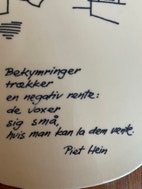 Bekymringer
trækker
en negativ rente:
de voxer
sig små,
hvis man kan la dem vente.
Piet Hein